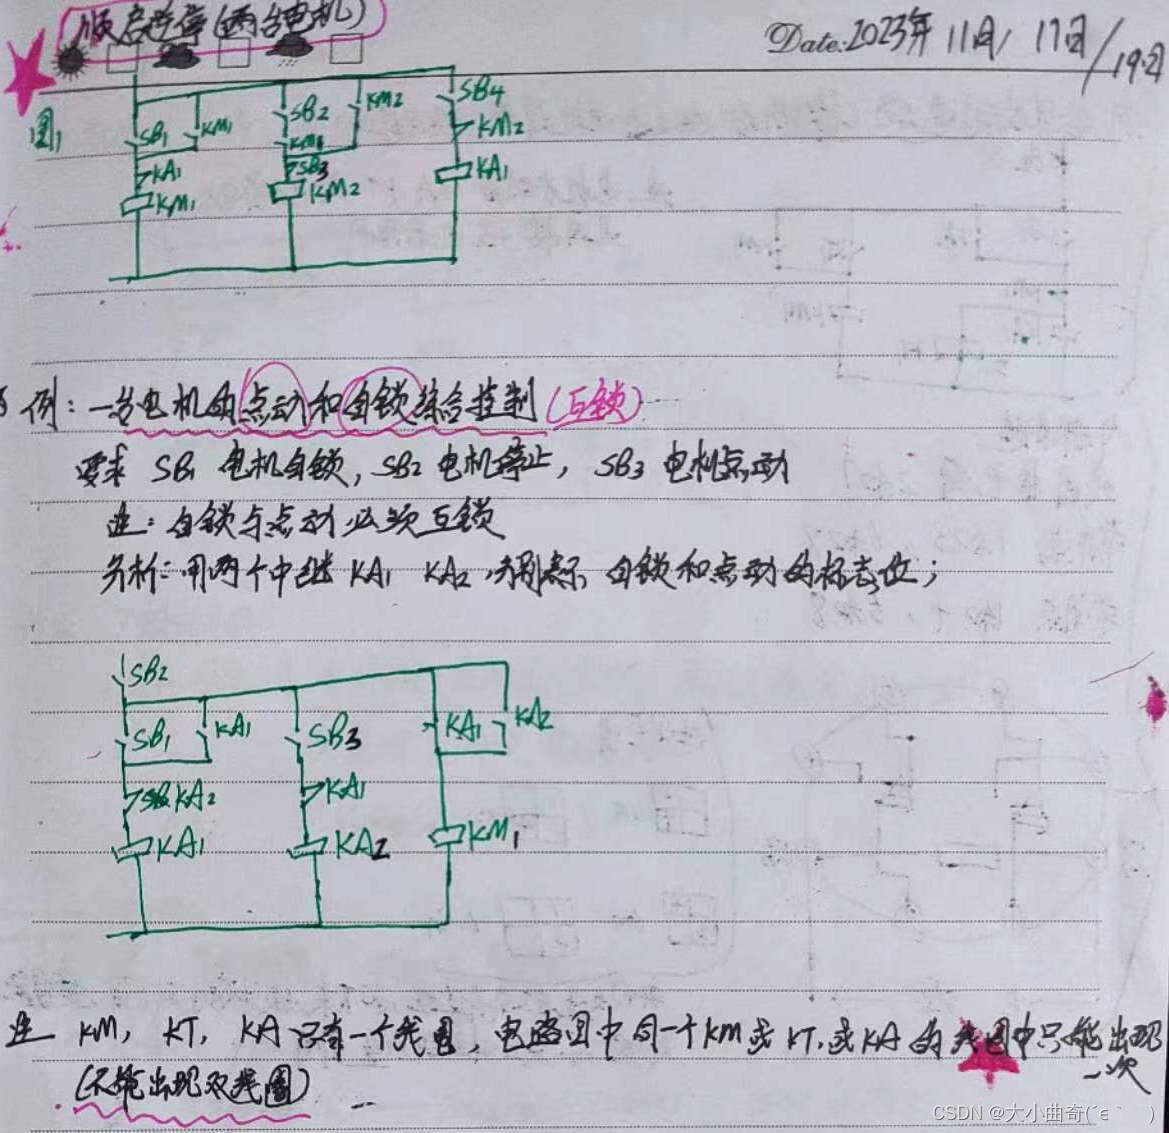 顺启逆停(两台电机)
Date:2023年 11月/ 17日/19:21
图1
SB1 KM1 SB2 KM2 SB4
KM1 KM2
KA1 SB3 KA1
KM1 KM2
例:一台电机的点动和自锁综合控制(互锁)
要求 SB1 电机自锁,SB2 电机停止,SB3 电机点动
注:自锁与点动必须互锁
分析:用两个中继 KA1 KA2,分别表示 自锁和点动的标志位;
SB2
SB1 KA1 SB3 KA1 KA2
KA2 KA1
KA1 KA2 KM1
注 KM, KT, KA 只有一个线圈,电路图中同一个KM或KT,或KA的线圈中只能出现
一次
(不能出现双线圈)
CSDN @大小曲奇(´ε` )